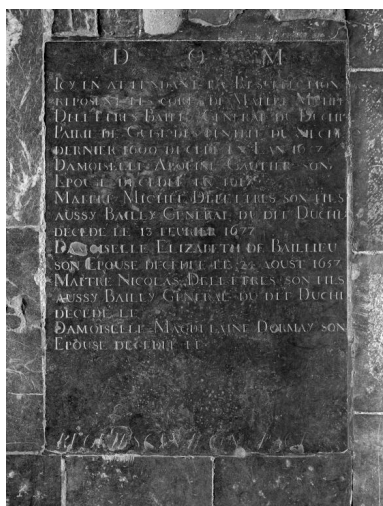 D O M
ICY EN ATTENDANT LA RESURRECTION
REPOSENT LES CORPS DE MAITRE MICHEL
DELLETTRES BAILLY GENERAL DU DUCHE
PAIRIE DE GUISE DES DU SIECLE
DERNIER 1600 DECEDE EN L'AN
DAMOISELLE GAUTIER SON
EPOUSE DECEDEE EN
MAITRE MICHEL DELLETTRES SON FILS
AUSSY BAILLY GENERAL DU DIT DUCHE
DECEDE LE 13 FEVRIER 1677
DAMOISELLE ELIZABETH DE BAILLIEU
SON EPOUSE DECEDEE LE 24 AOUST 1657
MAITRE NICOLAS DELLETTRES SON FILS
AUSSY BAILLY GENERAL DU DIT DUCHE
DECEDE LE
DAMOISELLE MAGDELAINE DORMAY SON
EPOUSE DECEDEE LE